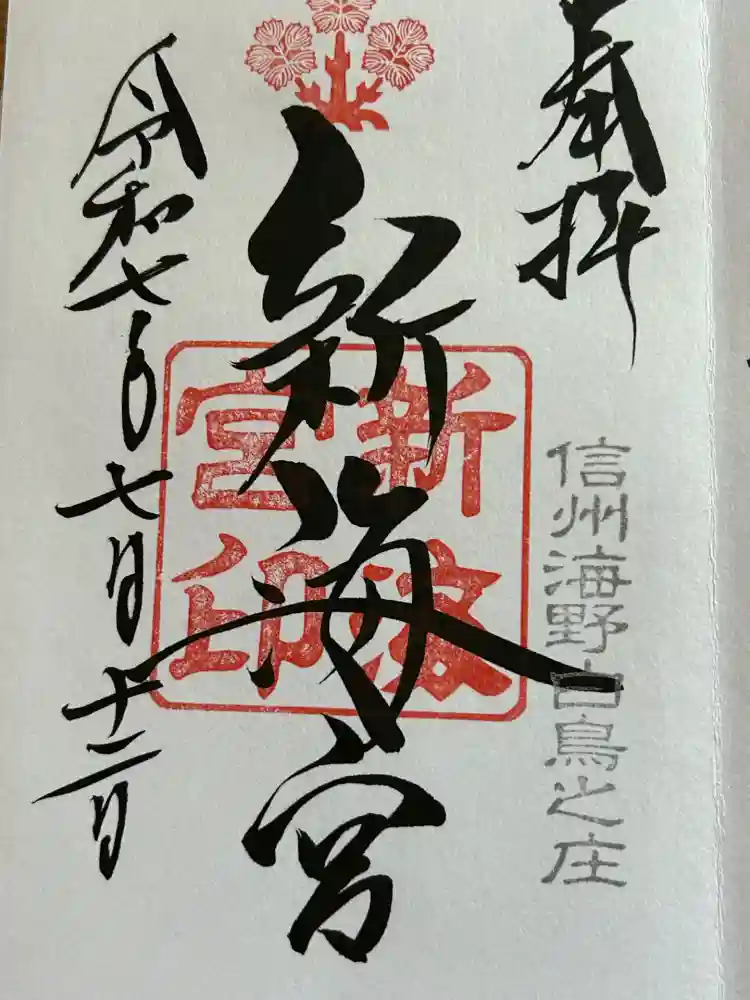 奉拝
信州海野白鳥之庄
新海宮
新海宮印
令和七年七月十二日